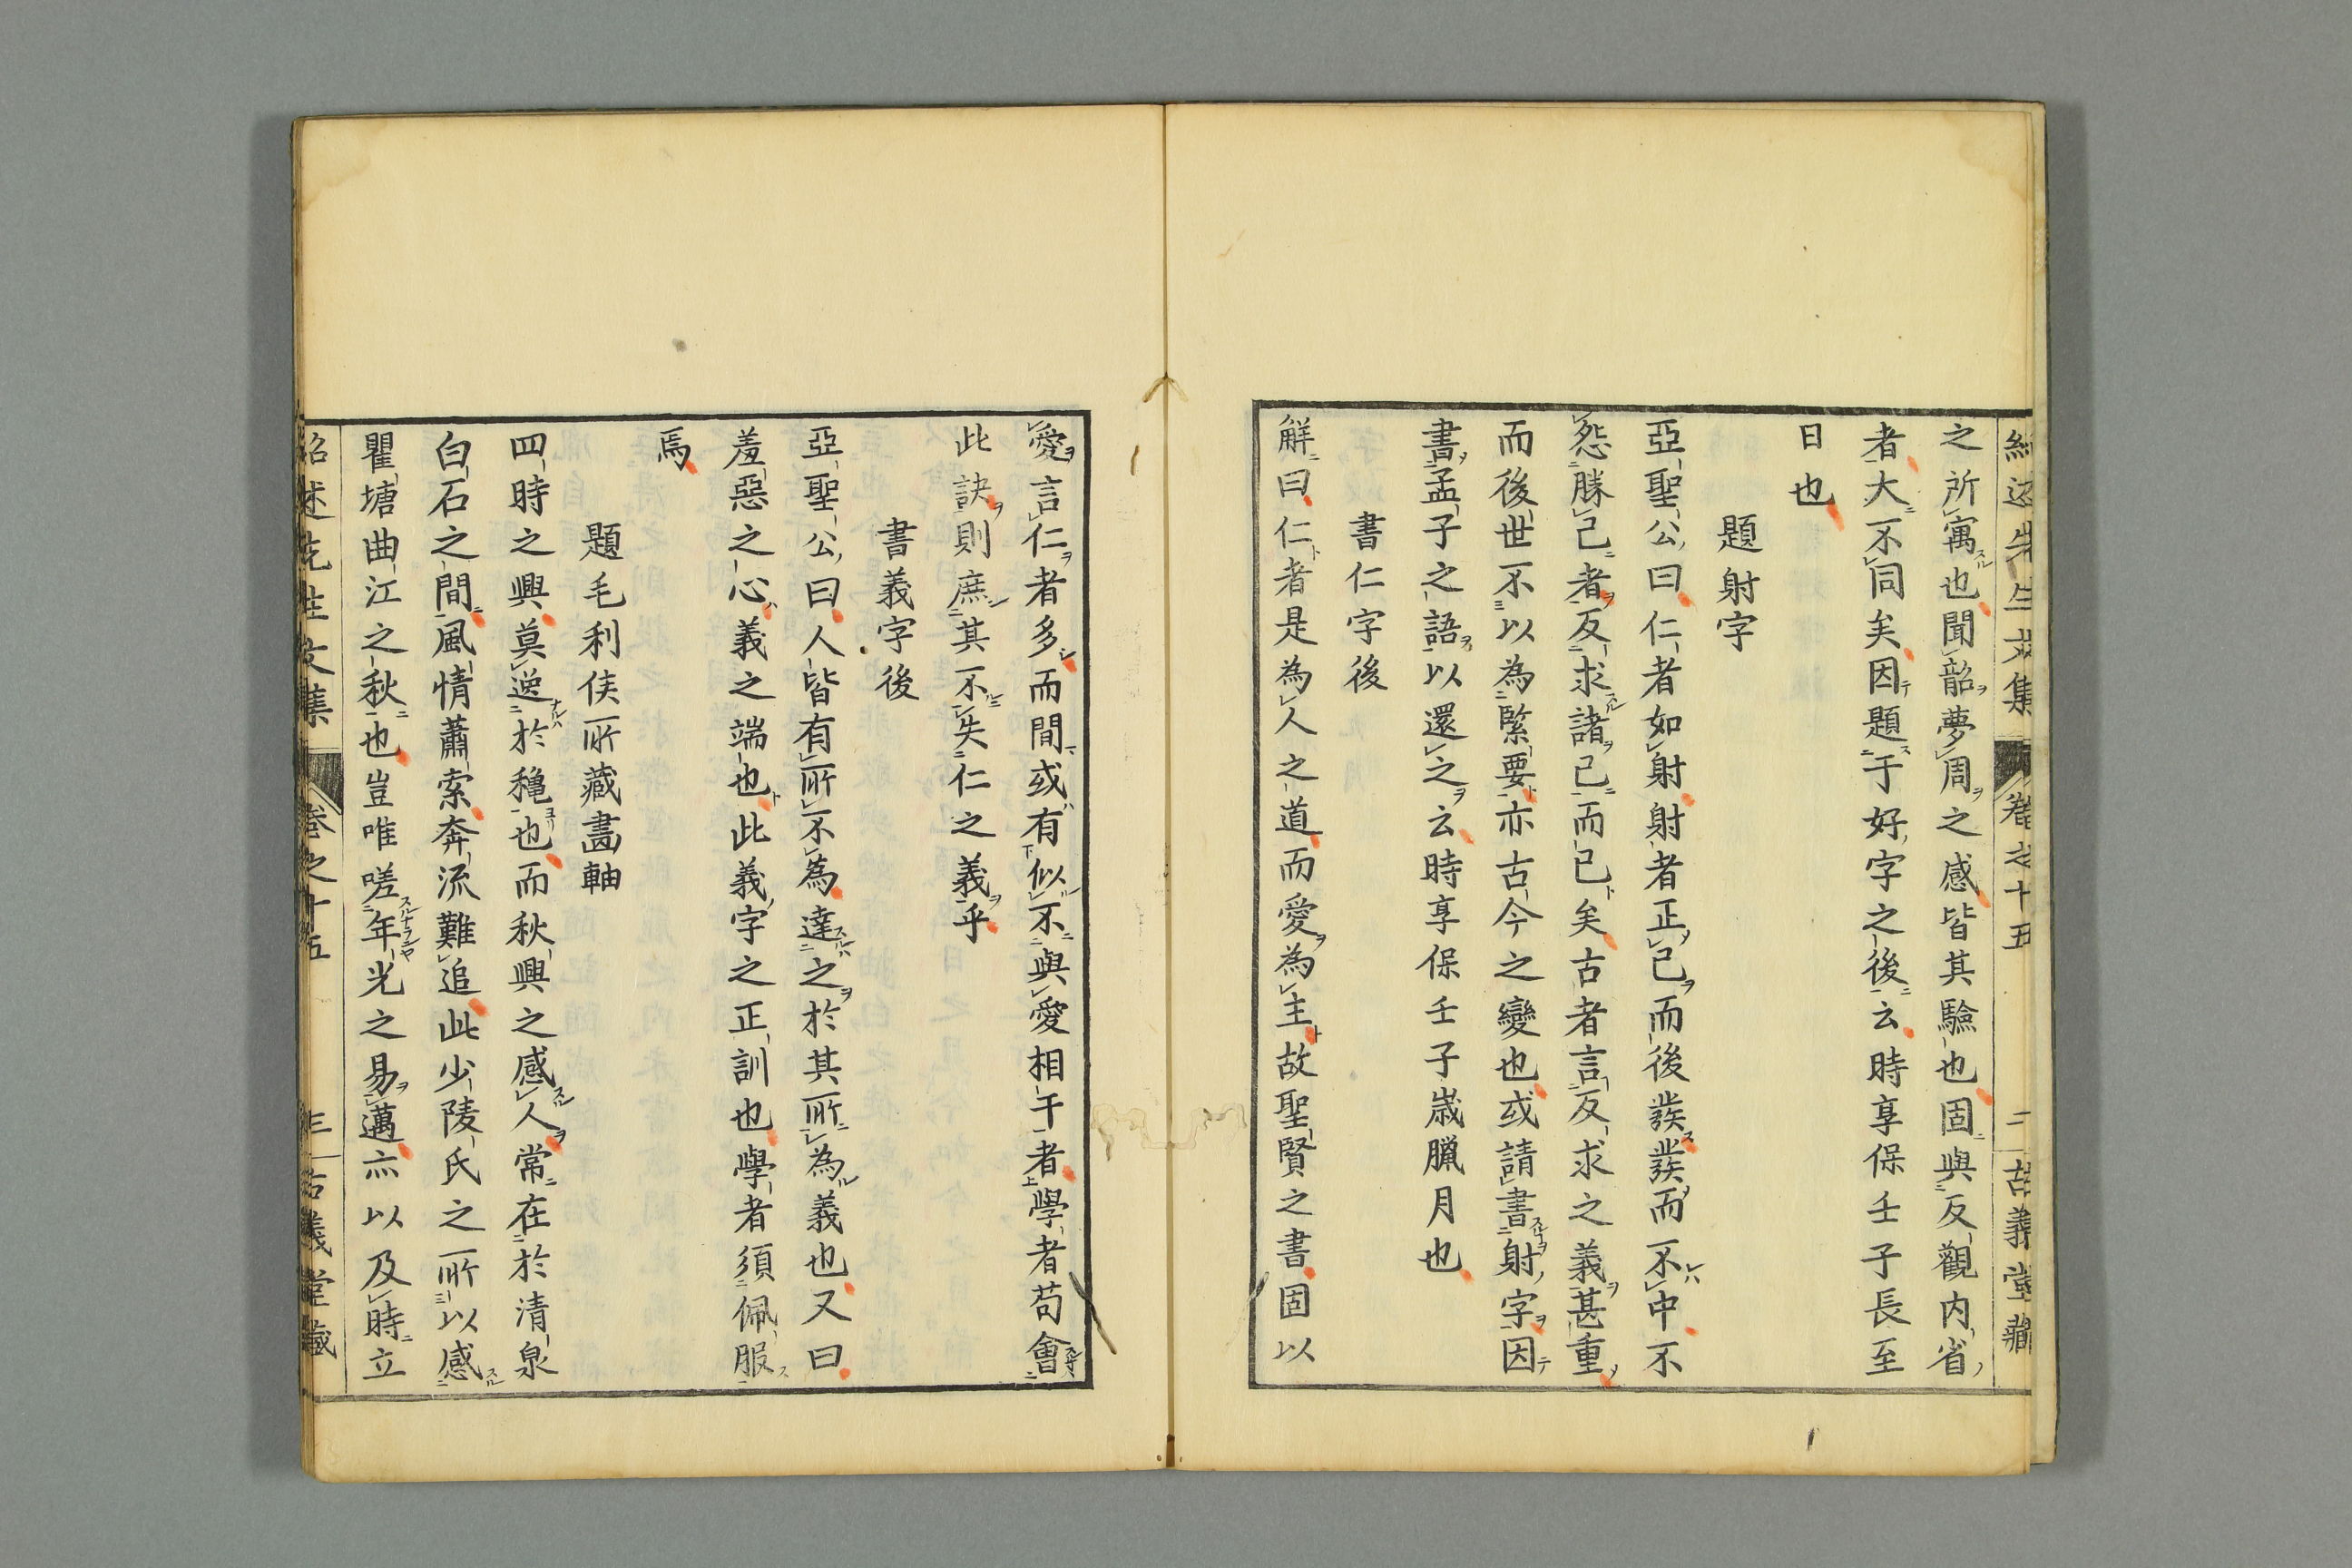 紹述先生文集 卷之十五 二 古義堂藏
之所寓也聞韶夢周之感皆其驗也固與反觀内省
者大不同矣因題于好字之後云時享保壬子長至
日也
題射字
亞聖公曰仁者如射射者正己而後發發而不中不
怨勝己者反求諸己而已矣古者言反求之義甚重
而後世不以為緊要亦古今之變也或請書射字因
書孟子之語以還之云時享保壬子歳臘月也
書仁字後
解曰仁者是為人之道而愛為主故聖賢之書固以
愛言仁者多而間或有似不與愛相干者學者苟會
此訣則庶其不失仁之義乎
書義字後
亞聖公曰人皆有所不為達之於其所為義也又曰
羞惡之心義之端也此義字之正訓也學者須佩服
焉
題毛利侯所藏畵軸
四時之興莫逆於穐也而秋興之感人常在於清泉
白石之間風情蕭索奔流難追此少陵氏之所以感
瞿塘曲江之秋也豈唯嗟年光之易邁亦以及時立
紹述先生文集 卷之十五 三 古義堂藏